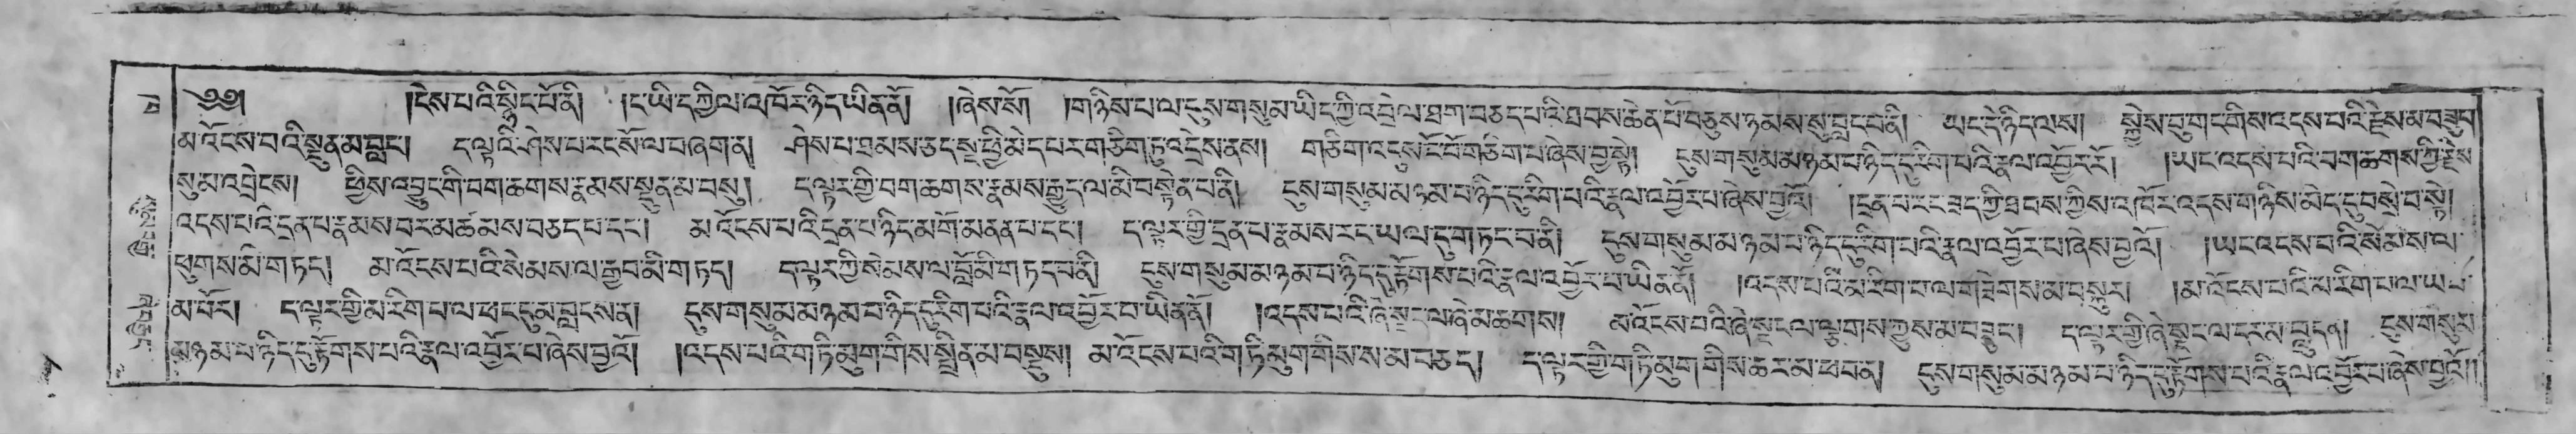 ༄༅། །ངེས་པའི་སྙིང་པོ་ནི། །ང་ཡི་དཀྱིལ་འཁོར་ཉིད་ཡིན་ནོ། །ཞེས་སོ། །གཉིས་པ་ལ་དུས་གསུམ་ཡིད་ཀྱི་འབྲེལ་ཐག་བཅད་པའི་ཐབས་ཆེན་པོ་བཅུས་ཉམས་སུ་བླང་བ་ནི། ཡང་དེ་ཉིད་ལས། སྐྱེས་བུ་གང་གིས་འདས་པའི་རྗེས་མ་བཟུབ
མ་འོངས་པའི་སྔུན་མ་བླང། ད་ལྟའི་ཤེས་པ་རང་སོ་ལ་བཞག་ན། ཤེས་པ་ཐམས་ཅད་སྔ་ཕྱི་མེད་པར་གཅིག་ཏུ་འདྲེས་ནས། གཅིག་འདུས་ངོ་བོ་གཅིག་པ་ཞེས་བྱ་སྟེ། དུས་གསུམ་མཉམ་པ་ཉིད་དུ་རིག་པའི་རྣལ་འབྱོར་རོ། །ཡང་འདས་པའི་བག་ཆགས་ཀྱི་རྗེས
སུ་མ་འབྲེངས། ཕྱིས་འབྱུང་གི་བག་ཆགས་རྣམས་སྔུན་མ་བསུ། ད་ལྟར་གྱི་བག་ཆགས་རྣམས་རྒྱུད་ལ་མི་བསྟེན་པ་ནི། དུས་གསུམ་མཉམ་པ་ཉིད་དུ་རིག་པའི་རྣལ་འབྱོར་པ་ཞེས་བྱའོ། །དྲན་པ་རང་ཟད་ཀྱི་ཐབས་ཀྱིས་འཁོར་འདས་གཉིས་མེད་དུ་བསྲེ་བ་སྟེ།
འདས་པའི་དྲན་པ་རྣམས་བར་མཚམས་བཅད་པ་དང། མ་འོངས་པའི་དྲན་པ་ཉིད་མགོ་མནན་པ་དང། ད་ལྟར་གྱི་དྲན་པ་རྣམས་རང་ཡལ་དུ་གཏང་བ་ནི། དུས་གསུམ་མཉམ་པ་ཉིད་དུ་རིག་པའི་རྣལ་འབྱོར་པ་ཞེས་བྱའོ། །ཡང་འདས་པའི་སེམས་ལ
ཕུགས་མི་གཏད། མ་འོངས་པའི་སེམས་ལ་རྒྱབ་མི་གཏད། ད་ལྟར་ཀྱི་སེམས་ལ་བློ་མི་གཏད་པ་ནི། དུས་གསུམ་མཉམ་པ་ཉིད་དུ་རྟོགས་པའི་རྣལ་འབྱོར་པ་ཡིན་ནོ། །འདས་པའི་མ་རིག་པ་ལ་གཟེགས་མ་བསྐུར། །མ་འོངས་པའི་མ་རིག་པ་ལ་ཡབ
མ་བོར། ད་ལྟར་གྱི་མ་རིག་པ་ལ་ཕང་དུ་མ་བླངས་ན། དུས་གསུམ་མཉམ་པ་ཉིད་དུ་རིག་པའི་རྣལ་འབྱོར་པ་ཡིན་ནོ། །འདས་པའི་ཞེ་སྡང་ལ་ཞེ་མ་ཆགས། མ་འོངས་པའི་ཞེ་སྡང་ལ་ལྟགས་ཀྱུས་མ་བཟུང། ད་ལྟར་གྱི་ཞེ་སྡང་ལ་ངར་མ་བླུད་ན། དུས་གསུམ
མཉམ་པ་ཉིད་དུ་རྟོགས་པའི་རྣལ་འབྱོར་པ་ཞེས་བྱའོ། །འདས་པའི་གཏི་མུག་གིས་སྤྲིན་མ་བསྡུས། མ་འོངས་པའི་གཏི་མུག་གིས་ས་མ་བཅད། ད་ལྟར་གྱི་གཏི་མུག་གིས་ཆར་མ་ཕབ་ན། དུས་གསུམ་མཉམ་པ་ཉིད་དུ་རྟོགས་པའི་རྣལ་འབྱོར་པ་ཞེས་བྱའོ།།